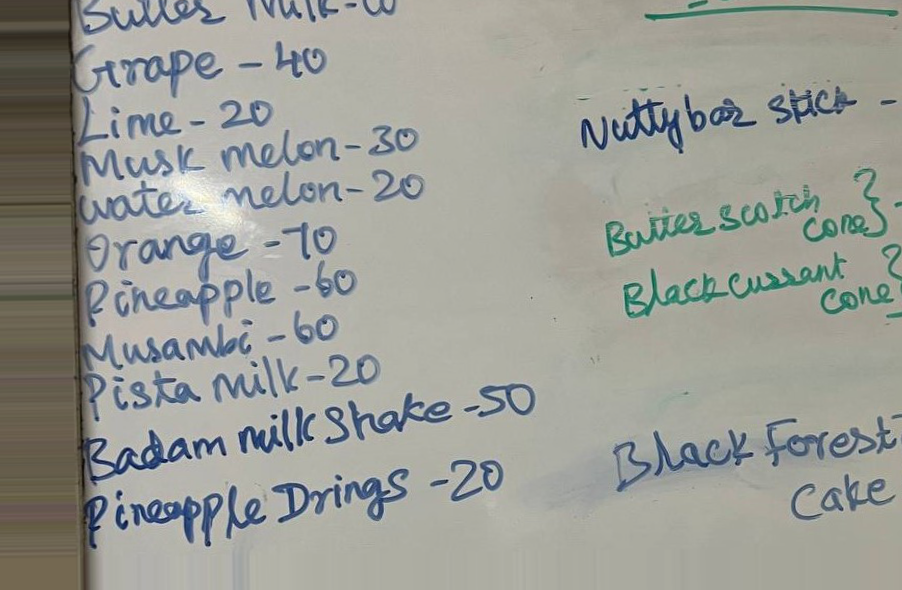 Butter Milk-
Grape - 40
Lime - 20
Musk melon - 30
water melon - 20
Orange - 70
Pineapple - 60
Musambi - 60
Pista milk - 20
Badam milk Shake - 50
Pineapple Drings - 20
Nuttybar stick -
Butter scotch
cone} -
Blackcurrant
cone}
Black Forest -
Cake